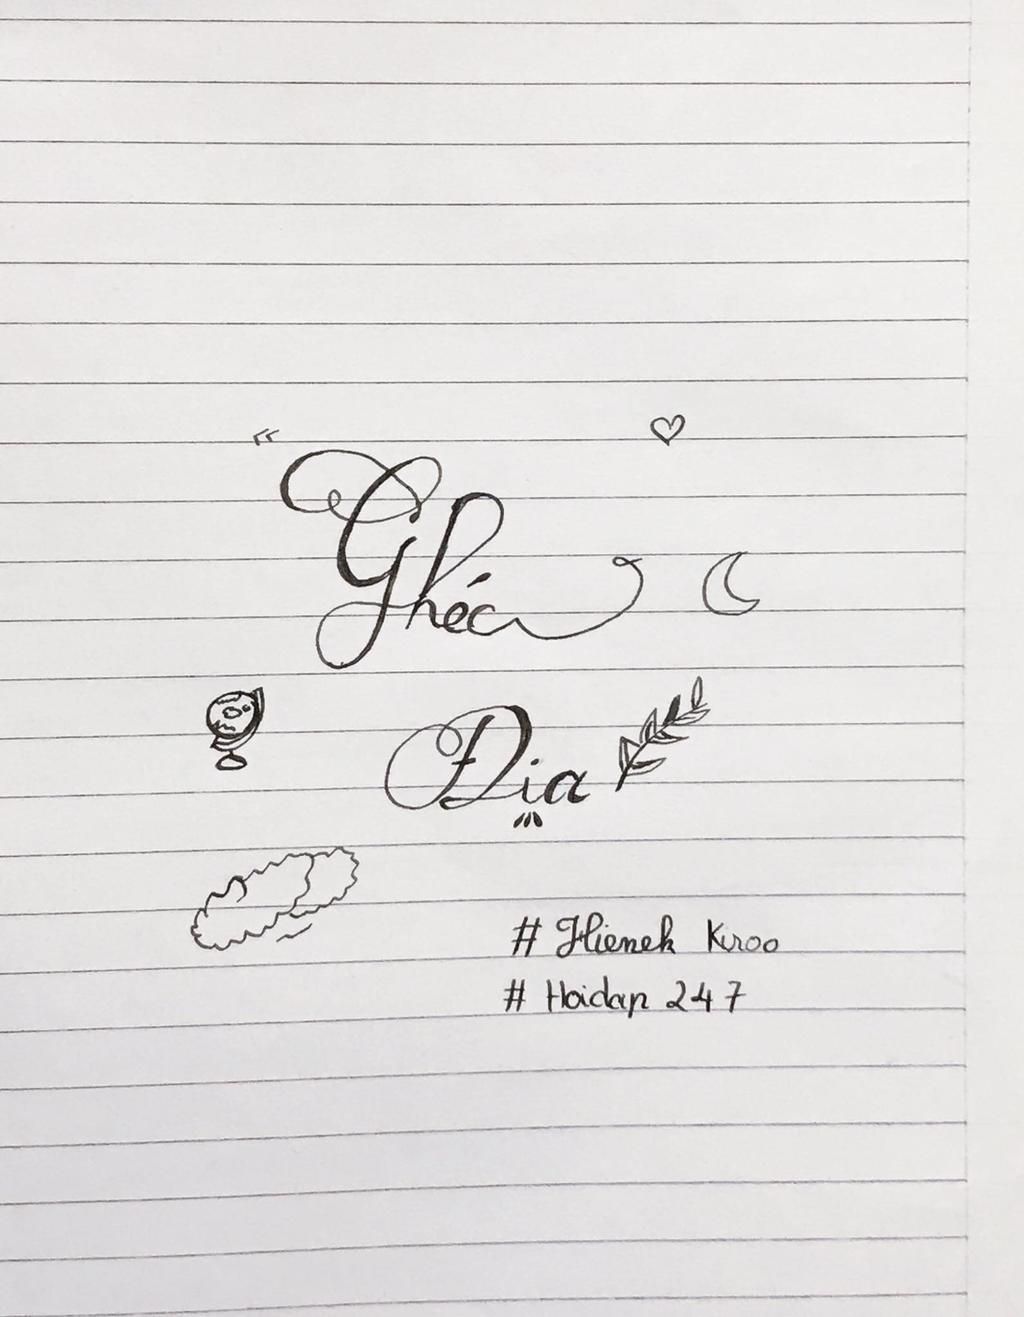 “ Ghéc
Địa
# Hienek Kroo
# Hoidap 247